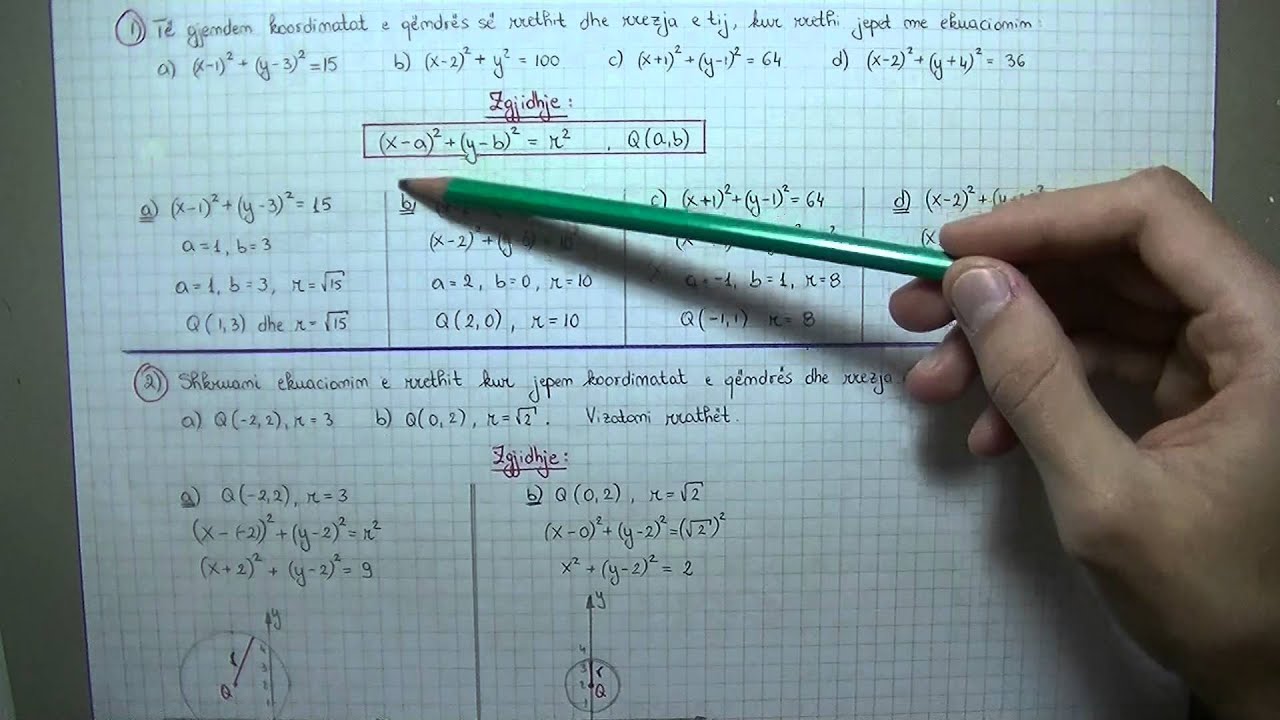 1) Të gjemdem koordimatat e qëmdrës së rrethit dhe rrezja e tij, kur rrethi jepet me ekuaciomim:
a) (x-1)² + (y-3)² = 15 b) (x-2)² + y² = 100 c) (x+1)² + (y-1)² = 64 d) (x-2)² + (y+4)² = 36
Zgjidhje:
(x-a)² + (y-b)² = r² , Q(a,b)
a) (x-1)² + (y-3)² = 15
a=1, b=3
a=1, b=3, r=√15
Q(1,3) dhe r=√15
b)
(x-2)² + (y-0)² = 10²
a=2, b=0, r=10
Q(2,0), r=10
c) (x+1)² + (y-1)² = 64
(x
a=-1, b=1, r=8
Q(-1,1) r=8
d) (x-2)² + (y
(x
a
Q
2) Shkruami ekuaciomim e rrethit kur jepem koordimatat e qëmdrës dhe rrezja
a) Q(-2,2), r=3 b) Q(0,2), r=√2. Vizatami rrathët.
Zgjidhje:
a) Q(-2,2), r=3
(x-(-2))² + (y-2)² = r²
(x+2)² + (y-2)² = 9
y
4
3
2
1
r
Q
b) Q(0,2), r=√2
(x-0)² + (y-2)² = (√2)²
x² + (y-2)² = 2
y
4
3
2
1
r
Q